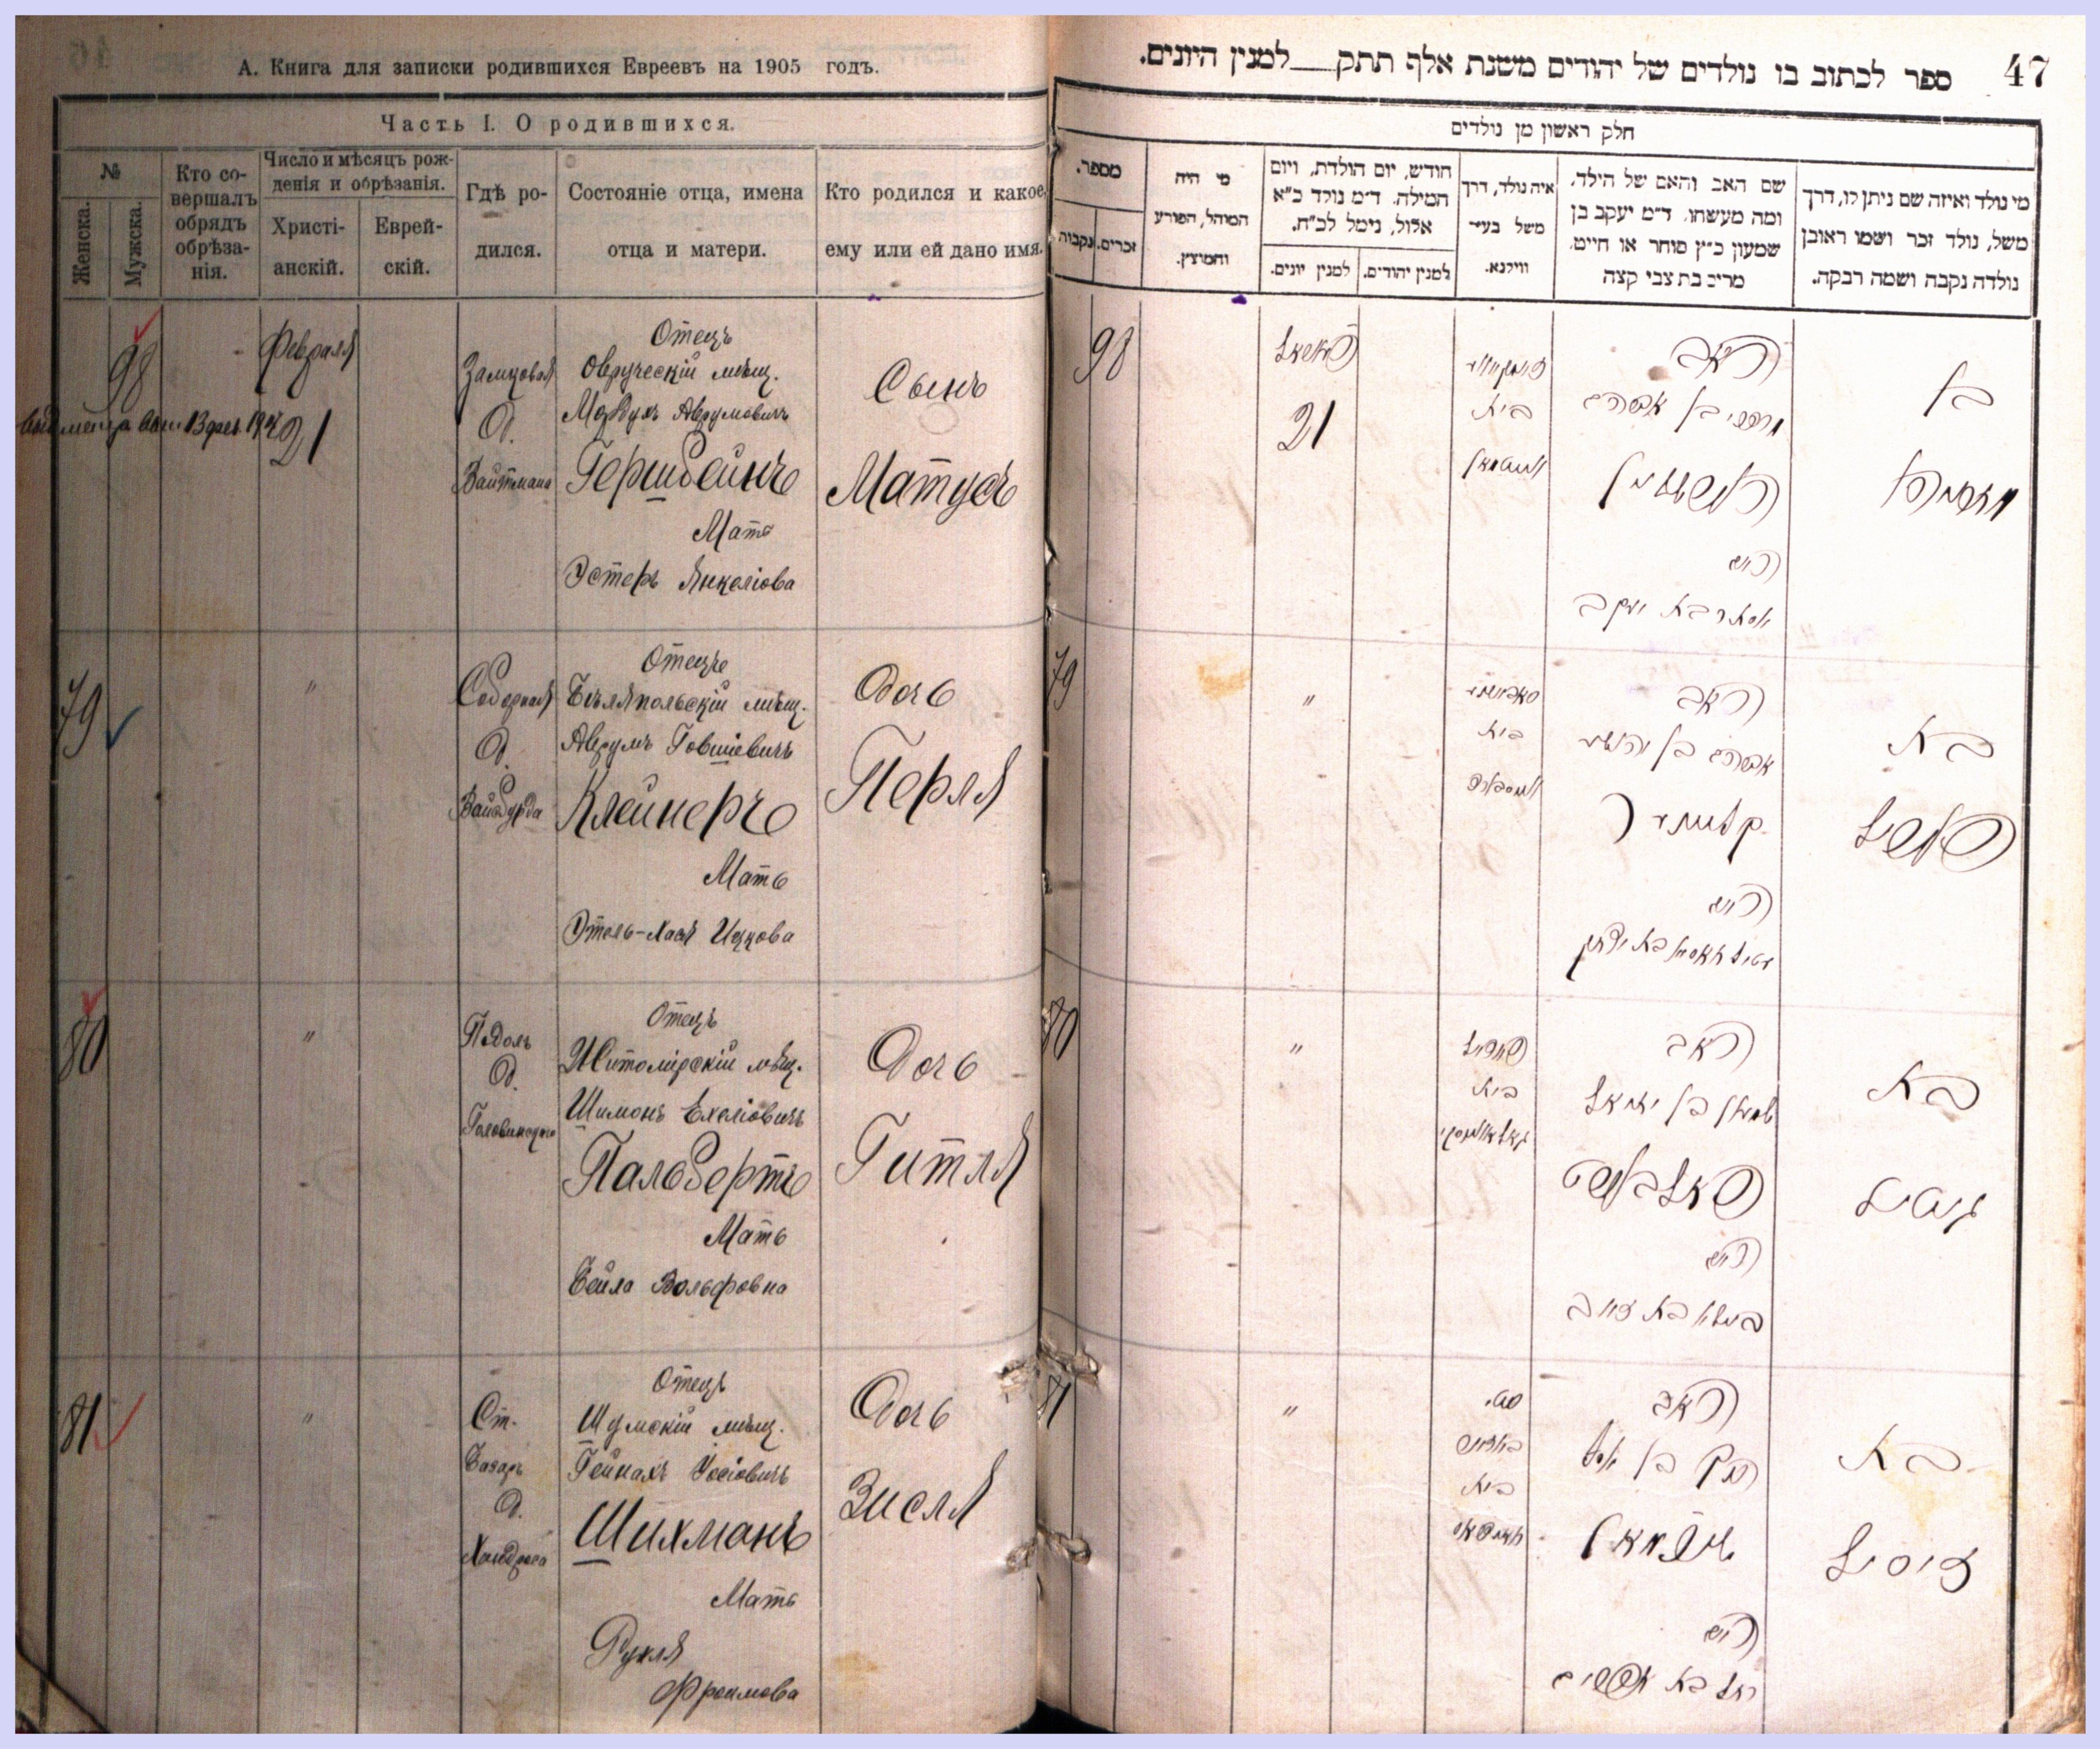 А. Книга для записки родившихся Евреевъ на 1905 годъ.
Часть I. О родившихся.
№
Женска.
Мужска.
Кто со-
вершалъ
обрядъ
обрѣза-
нія.
Число и мѣсяцъ рож-
денія и обрѣзанія.
Христі-
анскій.
Еврей-
скій.
Гдѣ ро-
дился.
Состояніе отца, имена
отца и матери.
Кто родился и какое
ему или ей дано имя.
98
Февраля
21
Замковая
д.
Вайтмана
Отецъ
Овруческій мѣщ.
Мордухъ Аврумовичъ
Герщбейнъ
Мать
Эстеръ Янкеліова
Сынъ
Матусъ
79
"
Соборная
д.
Вайсбурда
Отецъ
Бѣляпольскій мѣщ.
Аврумъ Говшіевичъ
Клейнеръ
Мать
Этель-Хася Ицкова
Дочь
Перля
80
"
Подолъ
д.
Головинскаго
Отецъ
Житомірскій мѣщ.
Шимонъ Ехеліовичъ
Пальбертъ
Мать
Бейла Вольфовна
Дочь
Гитля
81
"
Ст.
Базаръ
д.
Хандроса
Отецъ
Шумскій мѣщ.
Гейнахъ Іосіовичъ
Шихманъ
Мать
Рухля
Фроимова
Дочь
Зисля
47
ספר לכתוב בו נולדים של יהודים משנת אלף תתק__למנין היונים.
חלק ראשון מן נולדים
מספר.
נקבות
זכרים.
מי היה
המוהל, הפורע
והמוצץ.
חודש, יום הולדת, ויום
המילה. ד״מ נולד כ״א
אלול, נימל לכ״ח.
למנין יונים.
למנין יהודים.
איה נולד, דרך
משל בעיר
ווילנא.
שם האב והאם של הילד,
ומה מעשהו. ד״מ יעקב בן
שמעון כ״ץ סוחר או חייט.
מרים בת צבי קצה
מי נולד ואיזה שם ניתן לו, דרך
משל, נולד זכר ושמו ראובן
נולדה נקבה ושמה רבקה.
98
21
בית
האב
מרדכי בן אברהם
הערשביין
האם
אסתר בת יעקב
בן
79
"
בית
האב
אברהם בן יהושע
קליינער
האם
בת
פערל
80
"
בית
האב
שמעון בן יחיאל
פאלבערט
האם
ביילא בת זאב
בת
גיטיל
81
"
בית
האב
שיחמאן
האם
רחל בת אפרים
בת
זיסיל